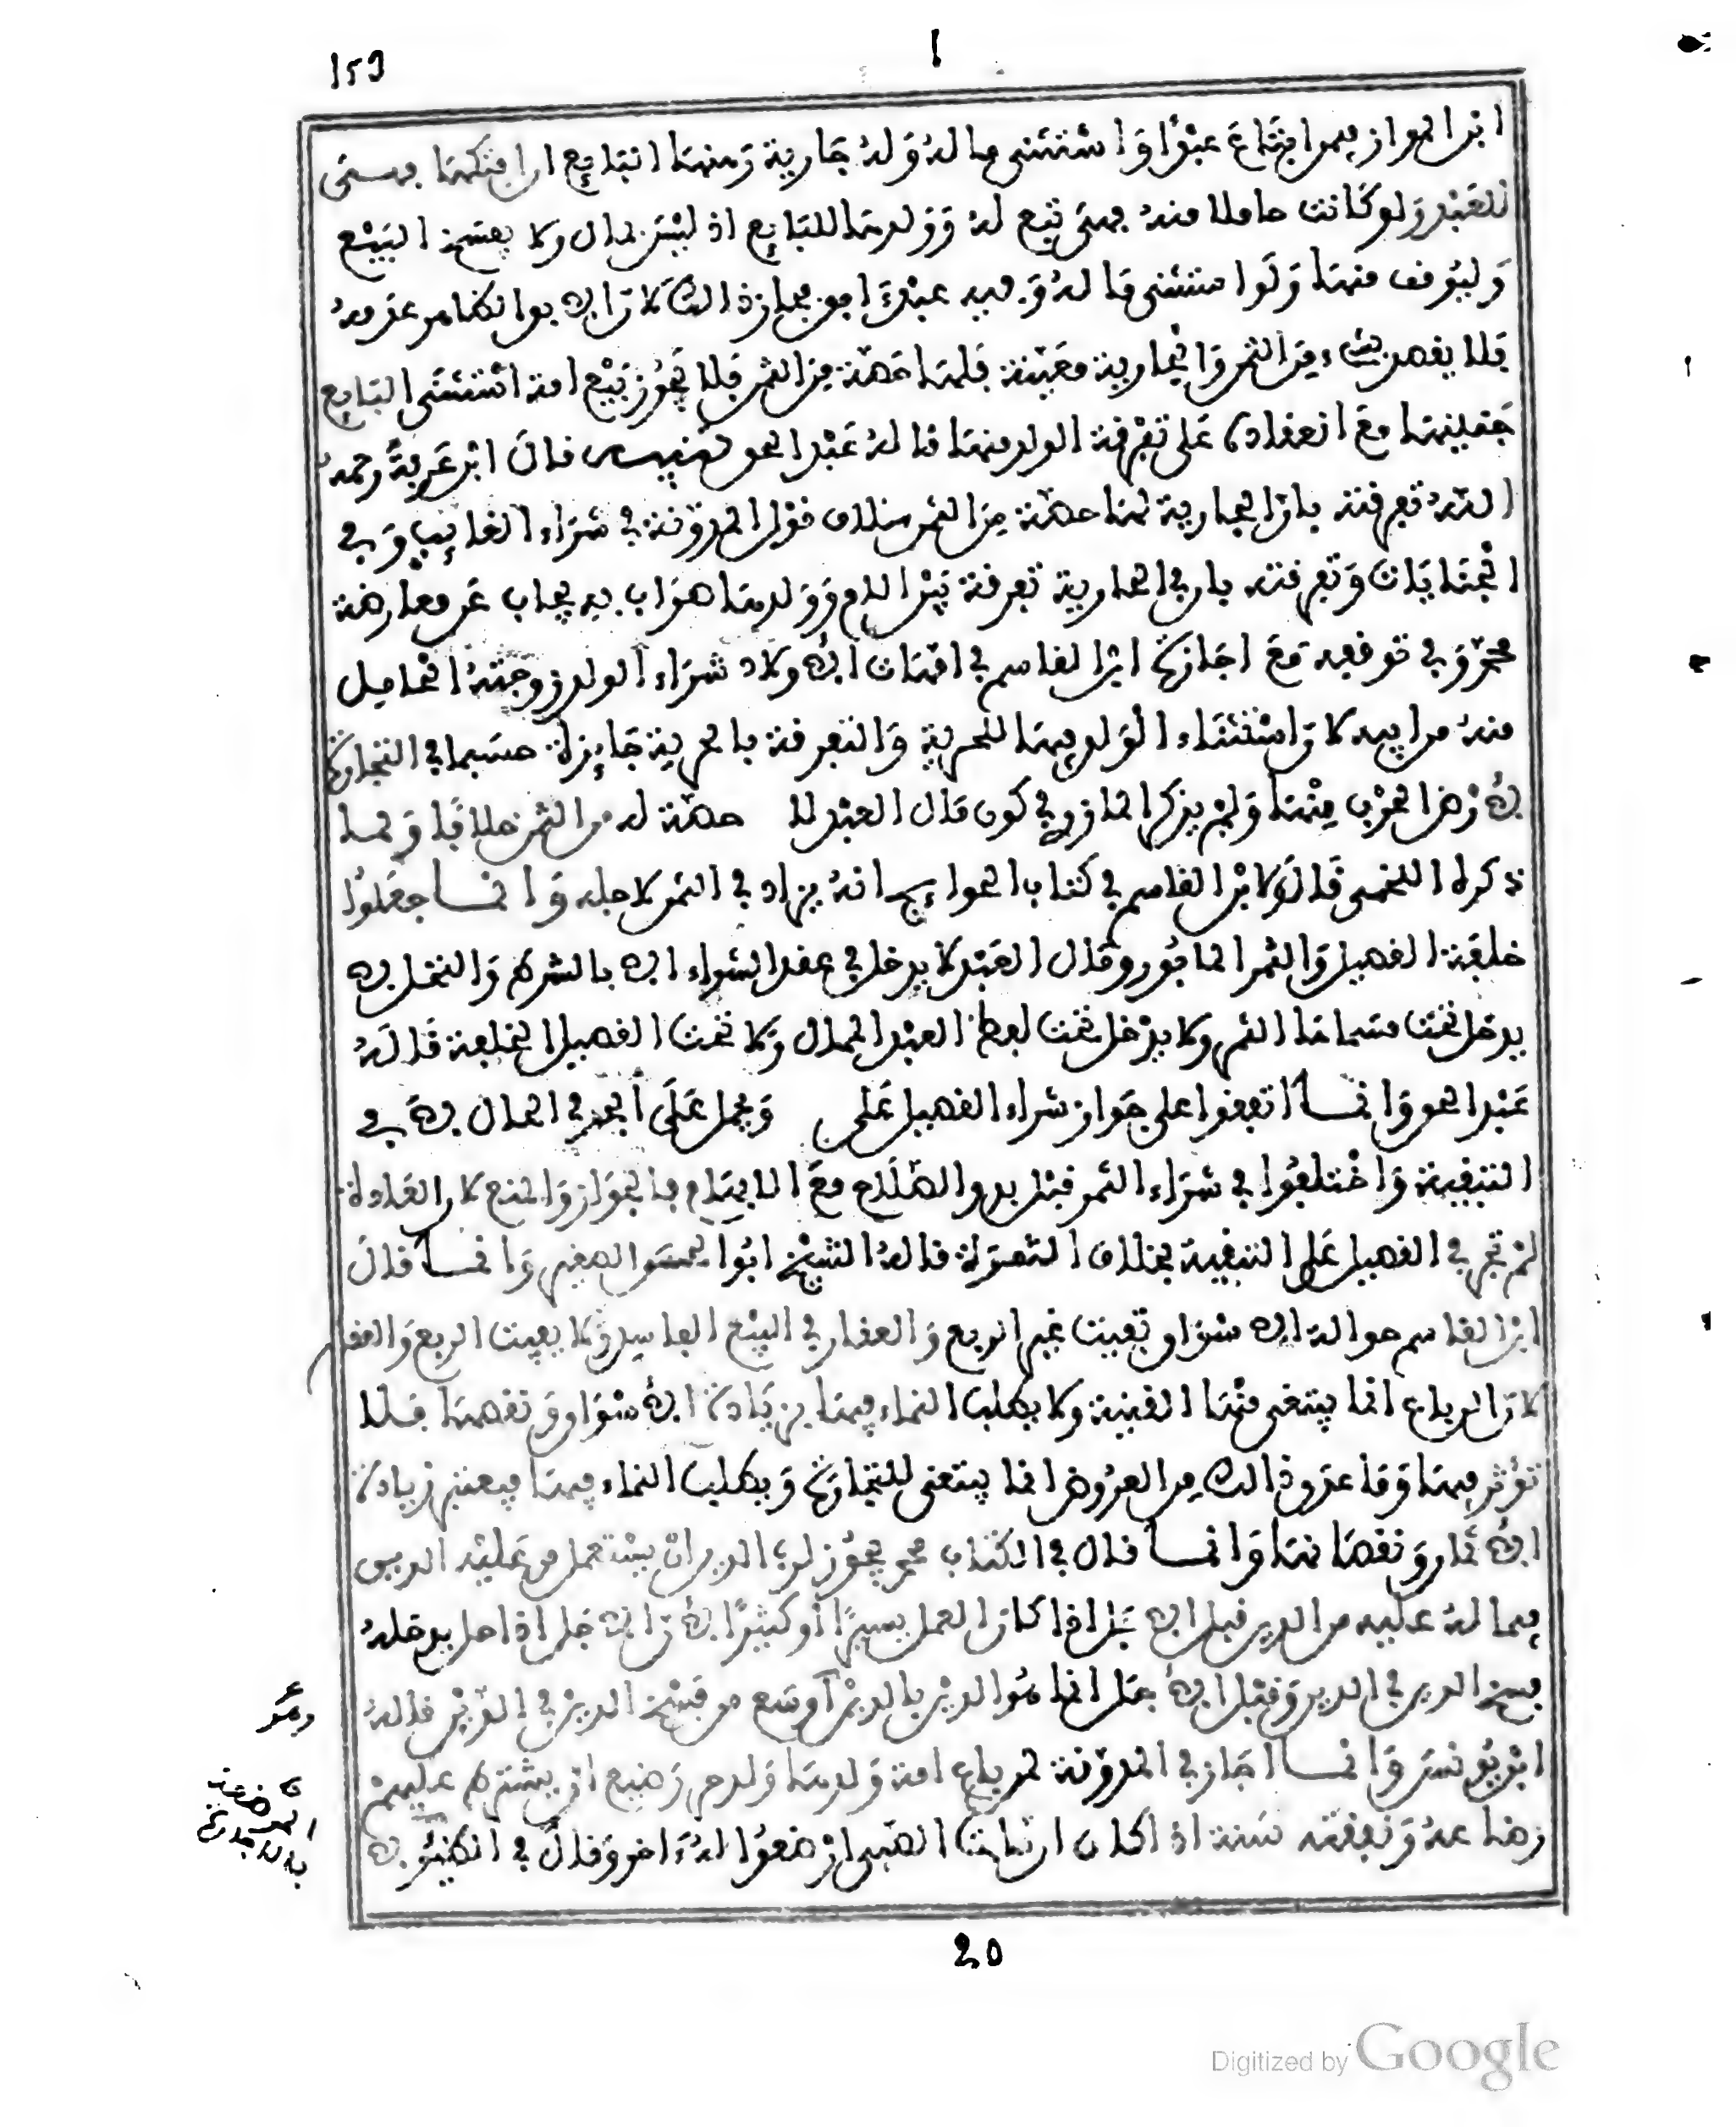 153
ابن المواز فيمن ابتاع عبدا واستثنى ماله وله جارية رهنها البائع ان افتكها فهي
للعبد ولو كانت حاملا منه فهي تبع له وولدها للبائع اذ ليس بمال ولا يفسخ البيع
وليوقف منها ولو استثنى ماله وفيه عبد ابق جاز ذلك لان الابق انكشاف عدمه
فلا ينقص شيء من الثمن والجارية معينة فلها حصة من الثمن فلا يجوز بيع امة استثنى البائع
جنينها مع انعقاده على تفرقة الولد منها قاله عبد الحق تنبيه قال ابن عرفة رحمه
الله تفرقته بان الجارية لها حصة من الثمن خلاف قول المدونة في شراء الغائب وفي
الجنايات وتفرقته بان في الجارية تفرقة بين الام وولدها صواب به يجاب عن معارضة
محرز في توقفه مع اجازة ابن القاسم في امهات الاولاد شراء الولد زوجته الحامل
منه من ابيه لان استثناء الولد فيها للحرية والتفرقة بالحرية جائزة حسبما في التجارة
لارض الحرب منها ولم يذكر المازري في كون مال العبد لا حصة له من الثمن خلافا ولما
ذكره اللخمي قال لابن القاسم في كتاب الجوائح انه يزاد في الثمن لاجله وانما جعلوا
خلفة الفصيل والثمر المابور ومال العبد لا يدخل في عقد الشراء الا بالشرط والنخل لا
يدخل تحت مسماها الثمر ولا يدخل تحت لفظ العبد المال ولا تحت الفصيل الخلفة قاله
عبد الحق وانما اتفقوا على جواز شراء الفصيل على ويحمل على الجد في الحال لا في
التبقية واختلفوا في شراء الثمر قبل بدو الصلاح مع الابهام بالجواز والمنع لان العادة
لم تجر في الفصيل على التبقية بخلاف الثمرة قاله الشيخ ابو الحسن الصغير وانما قال
ابن القاسم حوالة الاسواق تفيت غير الربع والعقار في البيع الفاسد ولا يفيت الربع والعقار
لان الرباع انما يبتغى منها القنية ولا يطلب النماء فيها بزيادة الاسواق ونقصها فلا
تؤثر فيها وما عدى ذلك من العروض انما يبتغى للتجارة ويطلب النماء فيها فيعتبر زيادة
الاثمار ونقصانها وانما قال في الكتاب محمد يجوز لرب الدين ان يستعمل من عليه الدين
فيما له عليه من الدين قبل الاجل اذا كان العمل يسيرا او كثيرا لان الاجل اذا حل يدخله
فسخ الدين في الدين وقبل الاجل انما هو الدين بالدين اوسع من فسخ الدين في الدين قاله
ابن يونس وانما اجاز في المدونة لمن باع امة ولدها ولد حر رضيع ان يشترط عليهم
رضاعه ونفقته سنة اذا كان ان مات الصبي ارضعوا له اخر وقال في الظئر لا
وهو
المرضعة
بالاجارة
20
Digitized by Google